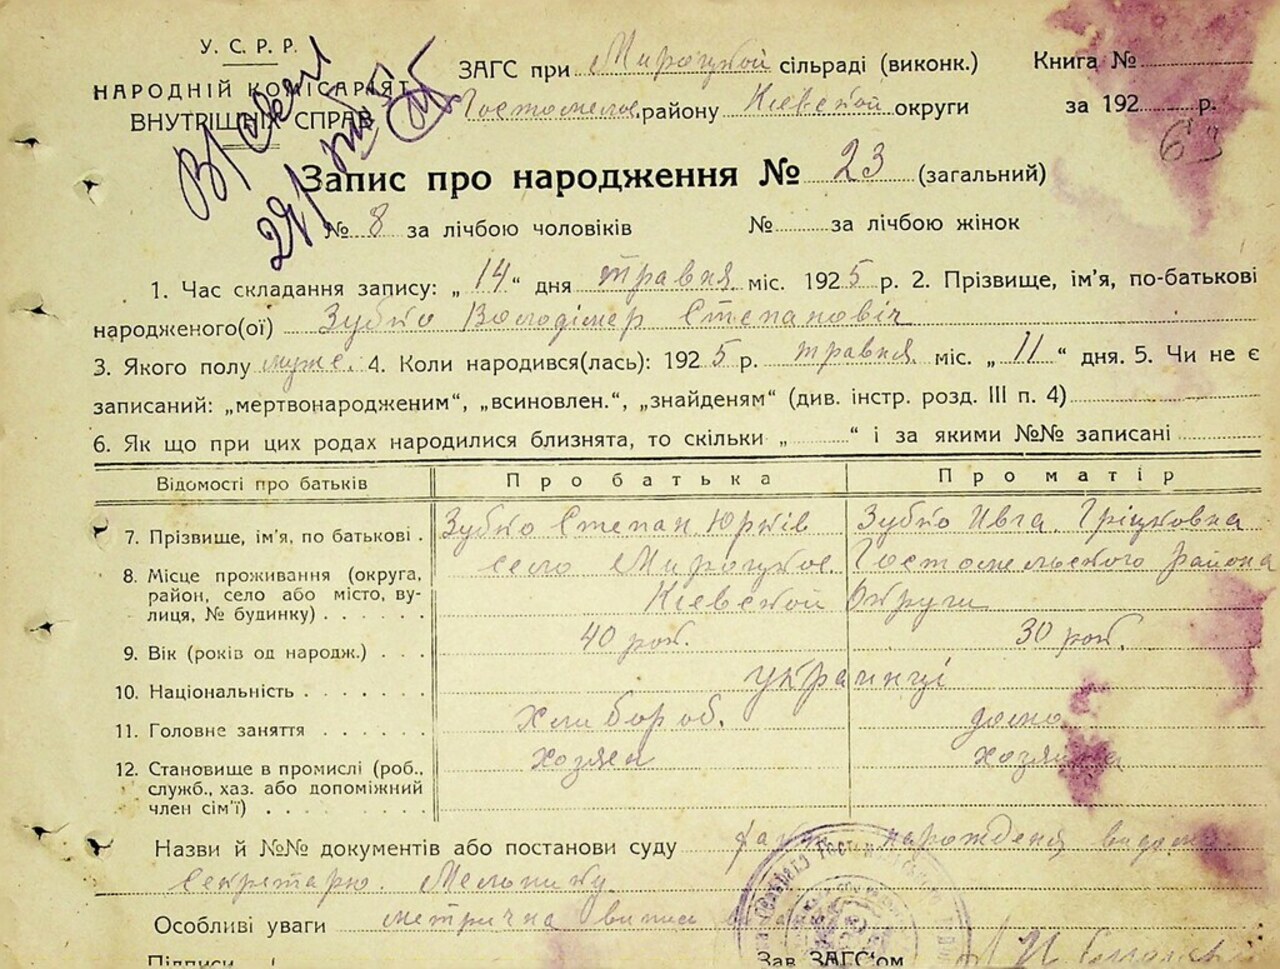 У. С. Р. Р.
НАРОДНІЙ КОМІСАРІЯТ
ВНУТРІШНІХ СПРАВ
ЗАГС при Мироцкой сільраді (виконк.) Книга №
Гостомелс. району Кіевской округи за 192 р.
Запис про народження № 23 (загальний)
№ 8 за лічбою чоловіків № за лічбою жінок
1. Час складання запису: „ 14 “ дня травня міс. 1925 р. 2. Прізвище, ім'я, по-батькові
народженого(ої) Зубко Володімер Степановіч
3. Якого полу муже. 4. Коли народився(лась): 1925 р. травня міс. „ 11 “ дня. 5. Чи не є
записаний: „мертвонародженим“, „всиновлен.“, „знайденям“ (див. інстр. розд. III п. 4)
6. Як що при цих родах народилися близнята, то скільки „ “ і за якими №№ записані
Відомості про батьків Про батька Про матір
7. Прізвище, ім'я, по батькові . Зубко Степан Юрків Зубко Ивга Гріцковна
8. Місце проживання (округа, село Мироцкое Гостомельского района
район, село або місто, ву- Кіевской Округи
лиця, № будинку) . . . . . .
9. Вік (років од народж.) . . . 40 рок. 30 рок.
10. Національність . . . . . . . украинці
11. Головне заняття . . . . . . Хлибороб. дома
12. Становище в промислі (роб., хозяен хозяйка
служб., хаз. або допоміжний
член сім'ї) . . . . . . . . .
Назви й №№ документів або постанови суду факт народженя видом
Секретарю Мельнику
Особливі уваги метрична випис
Підписи Зав. ЗАГС'ом